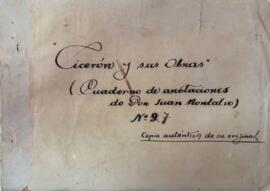 "Cicerón y sus Obras"
(Cuaderno de anotaciones
de Don Juan Montalvo)
Nº 9.7
Copia auténtica de su original